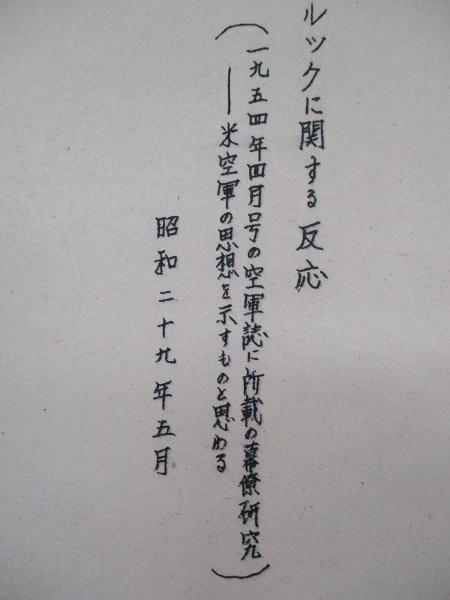 ルックに関する反応
（一九五四年四月号の空軍誌に所載の幕僚研究
——米空軍の思想を示すものと思わる）
昭和二十九年五月